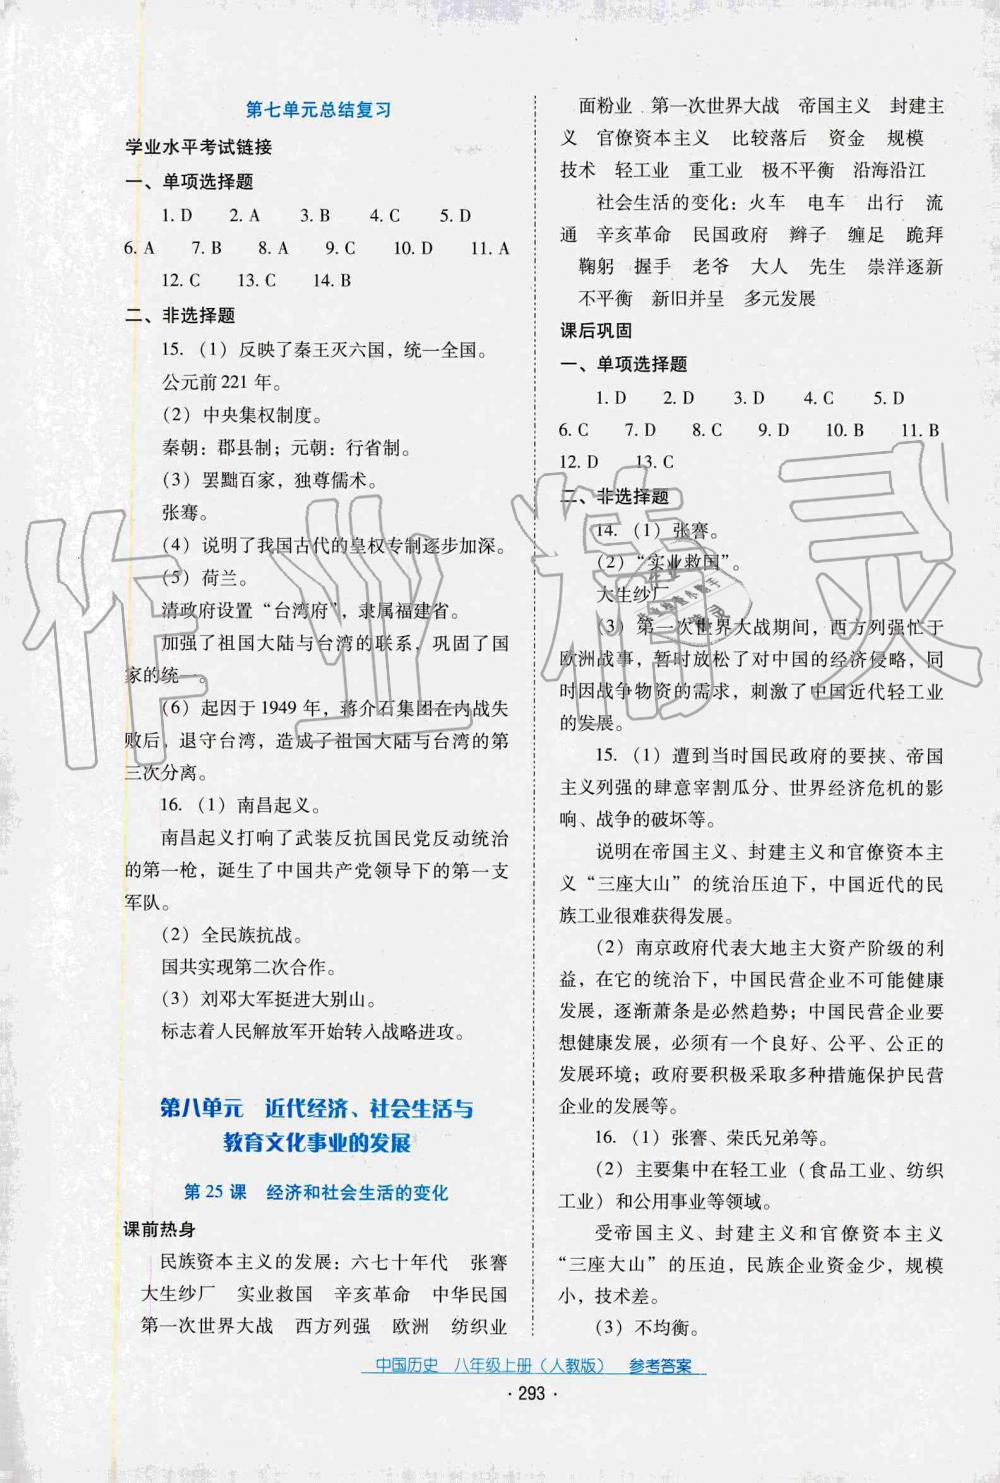 第七单元总结复习
学业水平考试链接
一、单项选择题
1. D 2. A 3. B 4. C 5. D
6. A 7. B 8. A 9. C 10. D 11. A
12. C 13. C 14. B
二、非选择题
15. （1）反映了秦王灭六国，统一全国。
公元前 221 年。
（2）中央集权制度。
秦朝：郡县制；元朝：行省制。
（3）罢黜百家，独尊儒术。
张骞。
（4）说明了我国古代的皇权专制逐步加深。
（5）荷兰。
清政府设置“台湾府”，隶属福建省。
加强了祖国大陆与台湾的联系，巩固了国
家的统一。
（6）起因于 1949 年，蒋介石集团在内战失
败后，退守台湾，造成了祖国大陆与台湾的第
三次分离。
16. （1）南昌起义。
南昌起义打响了武装反抗国民党反动统治
的第一枪，诞生了中国共产党领导下的第一支
军队。
（2）全民族抗战。
国共实现第二次合作。
（3）刘邓大军挺进大别山。
标志着人民解放军开始转入战略进攻。
第八单元 近代经济、社会生活与
教育文化事业的发展
第 25 课 经济和社会生活的变化
课前热身
民族资本主义的发展：六七十年代 张謇
大生纱厂 实业救国 辛亥革命 中华民国
第一次世界大战 西方列强 欧洲 纺织业
面粉业 第一次世界大战 帝国主义 封建主
义 官僚资本主义 比较落后 资金 规模
技术 轻工业 重工业 极不平衡 沿海沿江
社会生活的变化：火车 电车 出行 流
通 辛亥革命 民国政府 辫子 缠足 跪拜
鞠躬 握手 老爷 大人 先生 崇洋逐新
不平衡 新旧并呈 多元发展
课后巩固
一、单项选择题
1. D 2. D 3. D 4. C 5. D
6. C 7. D 8. C 9. D 10. B 11. B
12. D 13. C
二、非选择题
14. （1）张謇。
（2）“实业救国”。
大生纱厂。
（3）第一次世界大战期间，西方列强忙于
欧洲战事，暂时放松了对中国的经济侵略，同
时因战争物资的需求，刺激了中国近代轻工业
的发展。
15. （1）遭到当时国民政府的要挟、帝国
主义列强的肆意宰割瓜分、世界经济危机的影
响、战争的破坏等。
说明在帝国主义、封建主义和官僚资本主
义“三座大山”的统治压迫下，中国近代的民
族工业很难获得发展。
（2）南京政府代表大地主大资产阶级的利
益，在它的统治下，中国民营企业不可能健康
发展，逐渐萧条是必然趋势；中国民营企业要
想健康发展，必须有一个良好、公平、公正的
发展环境；政府要积极采取多种措施保护民营
企业的发展等。
16. （1）张謇、荣氏兄弟等。
（2）主要集中在轻工业（食品工业、纺织
工业）和公用事业等领域。
受帝国主义、封建主义和官僚资本主义
“三座大山”的压迫，民族企业资金少，规模
小，技术差。
（3）不均衡。
中国历史 八年级上册（人教版） 参考答案
· 293 ·
作业精灵